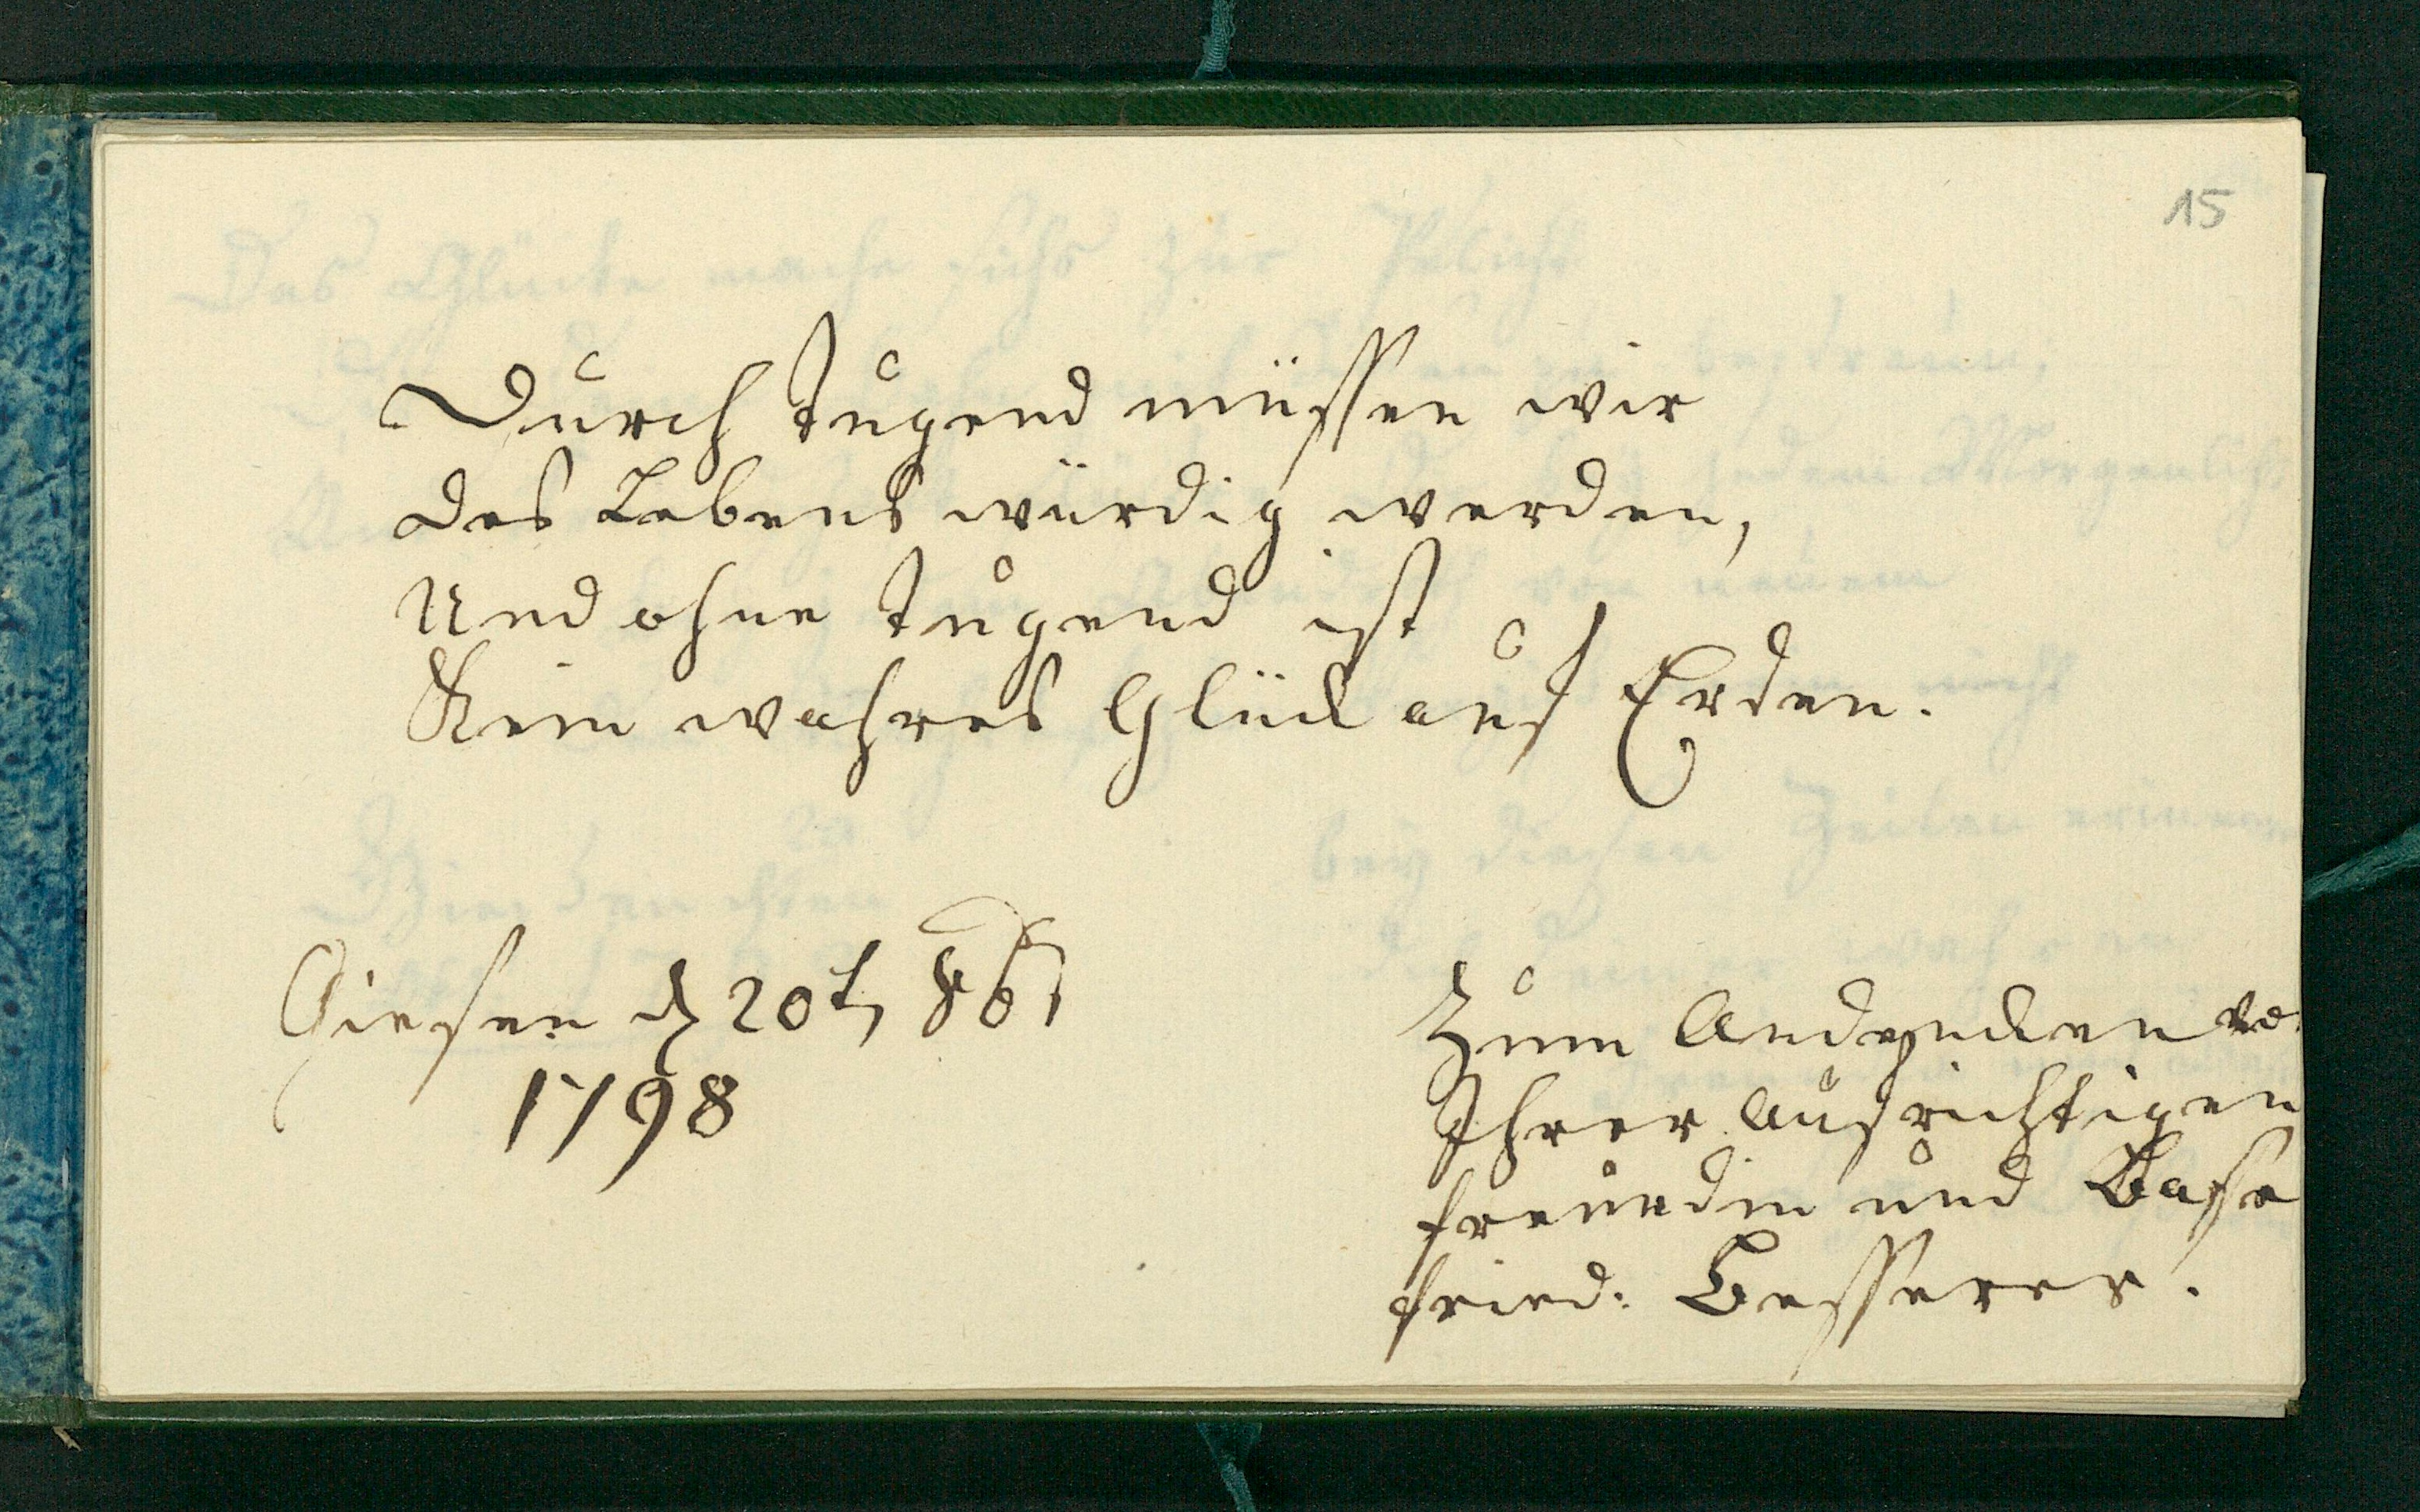 15
Durch Tugend müssen wir
des Lebens würdig werden,
Und ohne Tugend ist
Kein wahres Glück auf Erden.
Giesen d 20t 8b
1798
Zum Andencken vo
Ihrer aufrichtigen
freundin und Base
fried: Besserer.